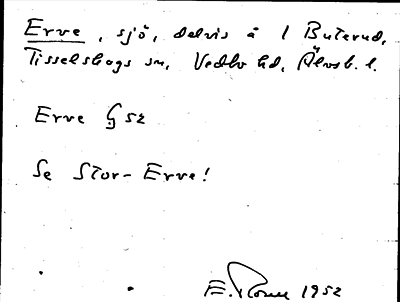 Erve, sjö, delvis å 1 Buterud,
Tisselskogs sn, Vedbo hd, Älvsb. l.
Erve § 52
Se Stor-Erve!
1952